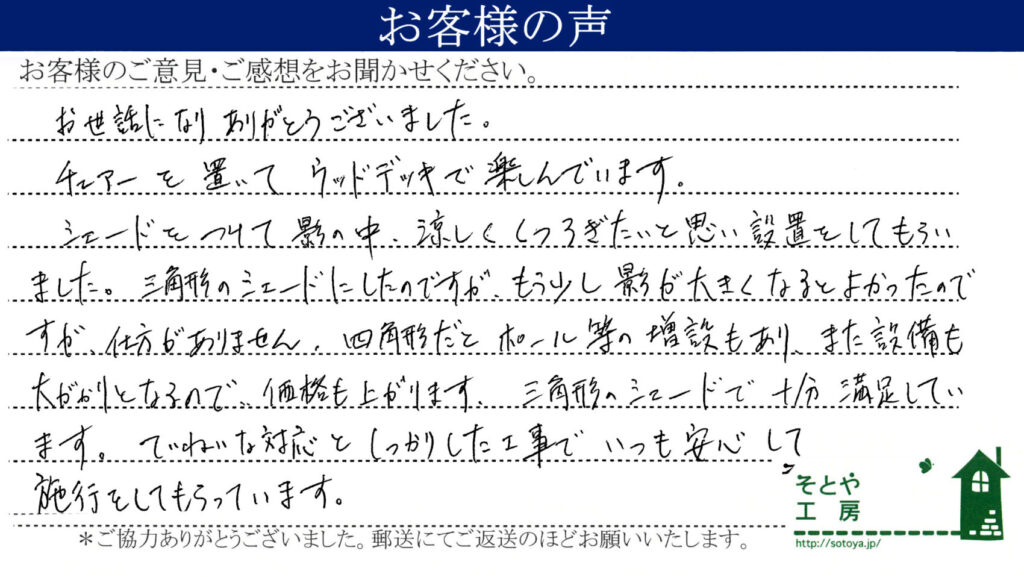 お客様の声
お客様のご意見・ご感想をお聞かせください。
お世話になり ありがとうございました。
チェアーを置いて ウッドデッキで楽しんでいます。
シェードをつけて影の中、涼しくくつろぎたいと思い設置をしてもらい
ました。三角形のシェードにしたのですが、もう少し影が大きくなるとよかったので
すが、仕方がありません。四角形だとポール等の増設もあり、また設備も
大がかりとなるので、価格も上がります。三角形のシェードで十分満足してい
ます。ていねいな対応としっかりした工事でいつも安心して
施行をしてもらっています。
そとや
工房
http://sotoya.jp/
*ご協力ありがとうございました。郵送にてご返送のほどお願いいたします。